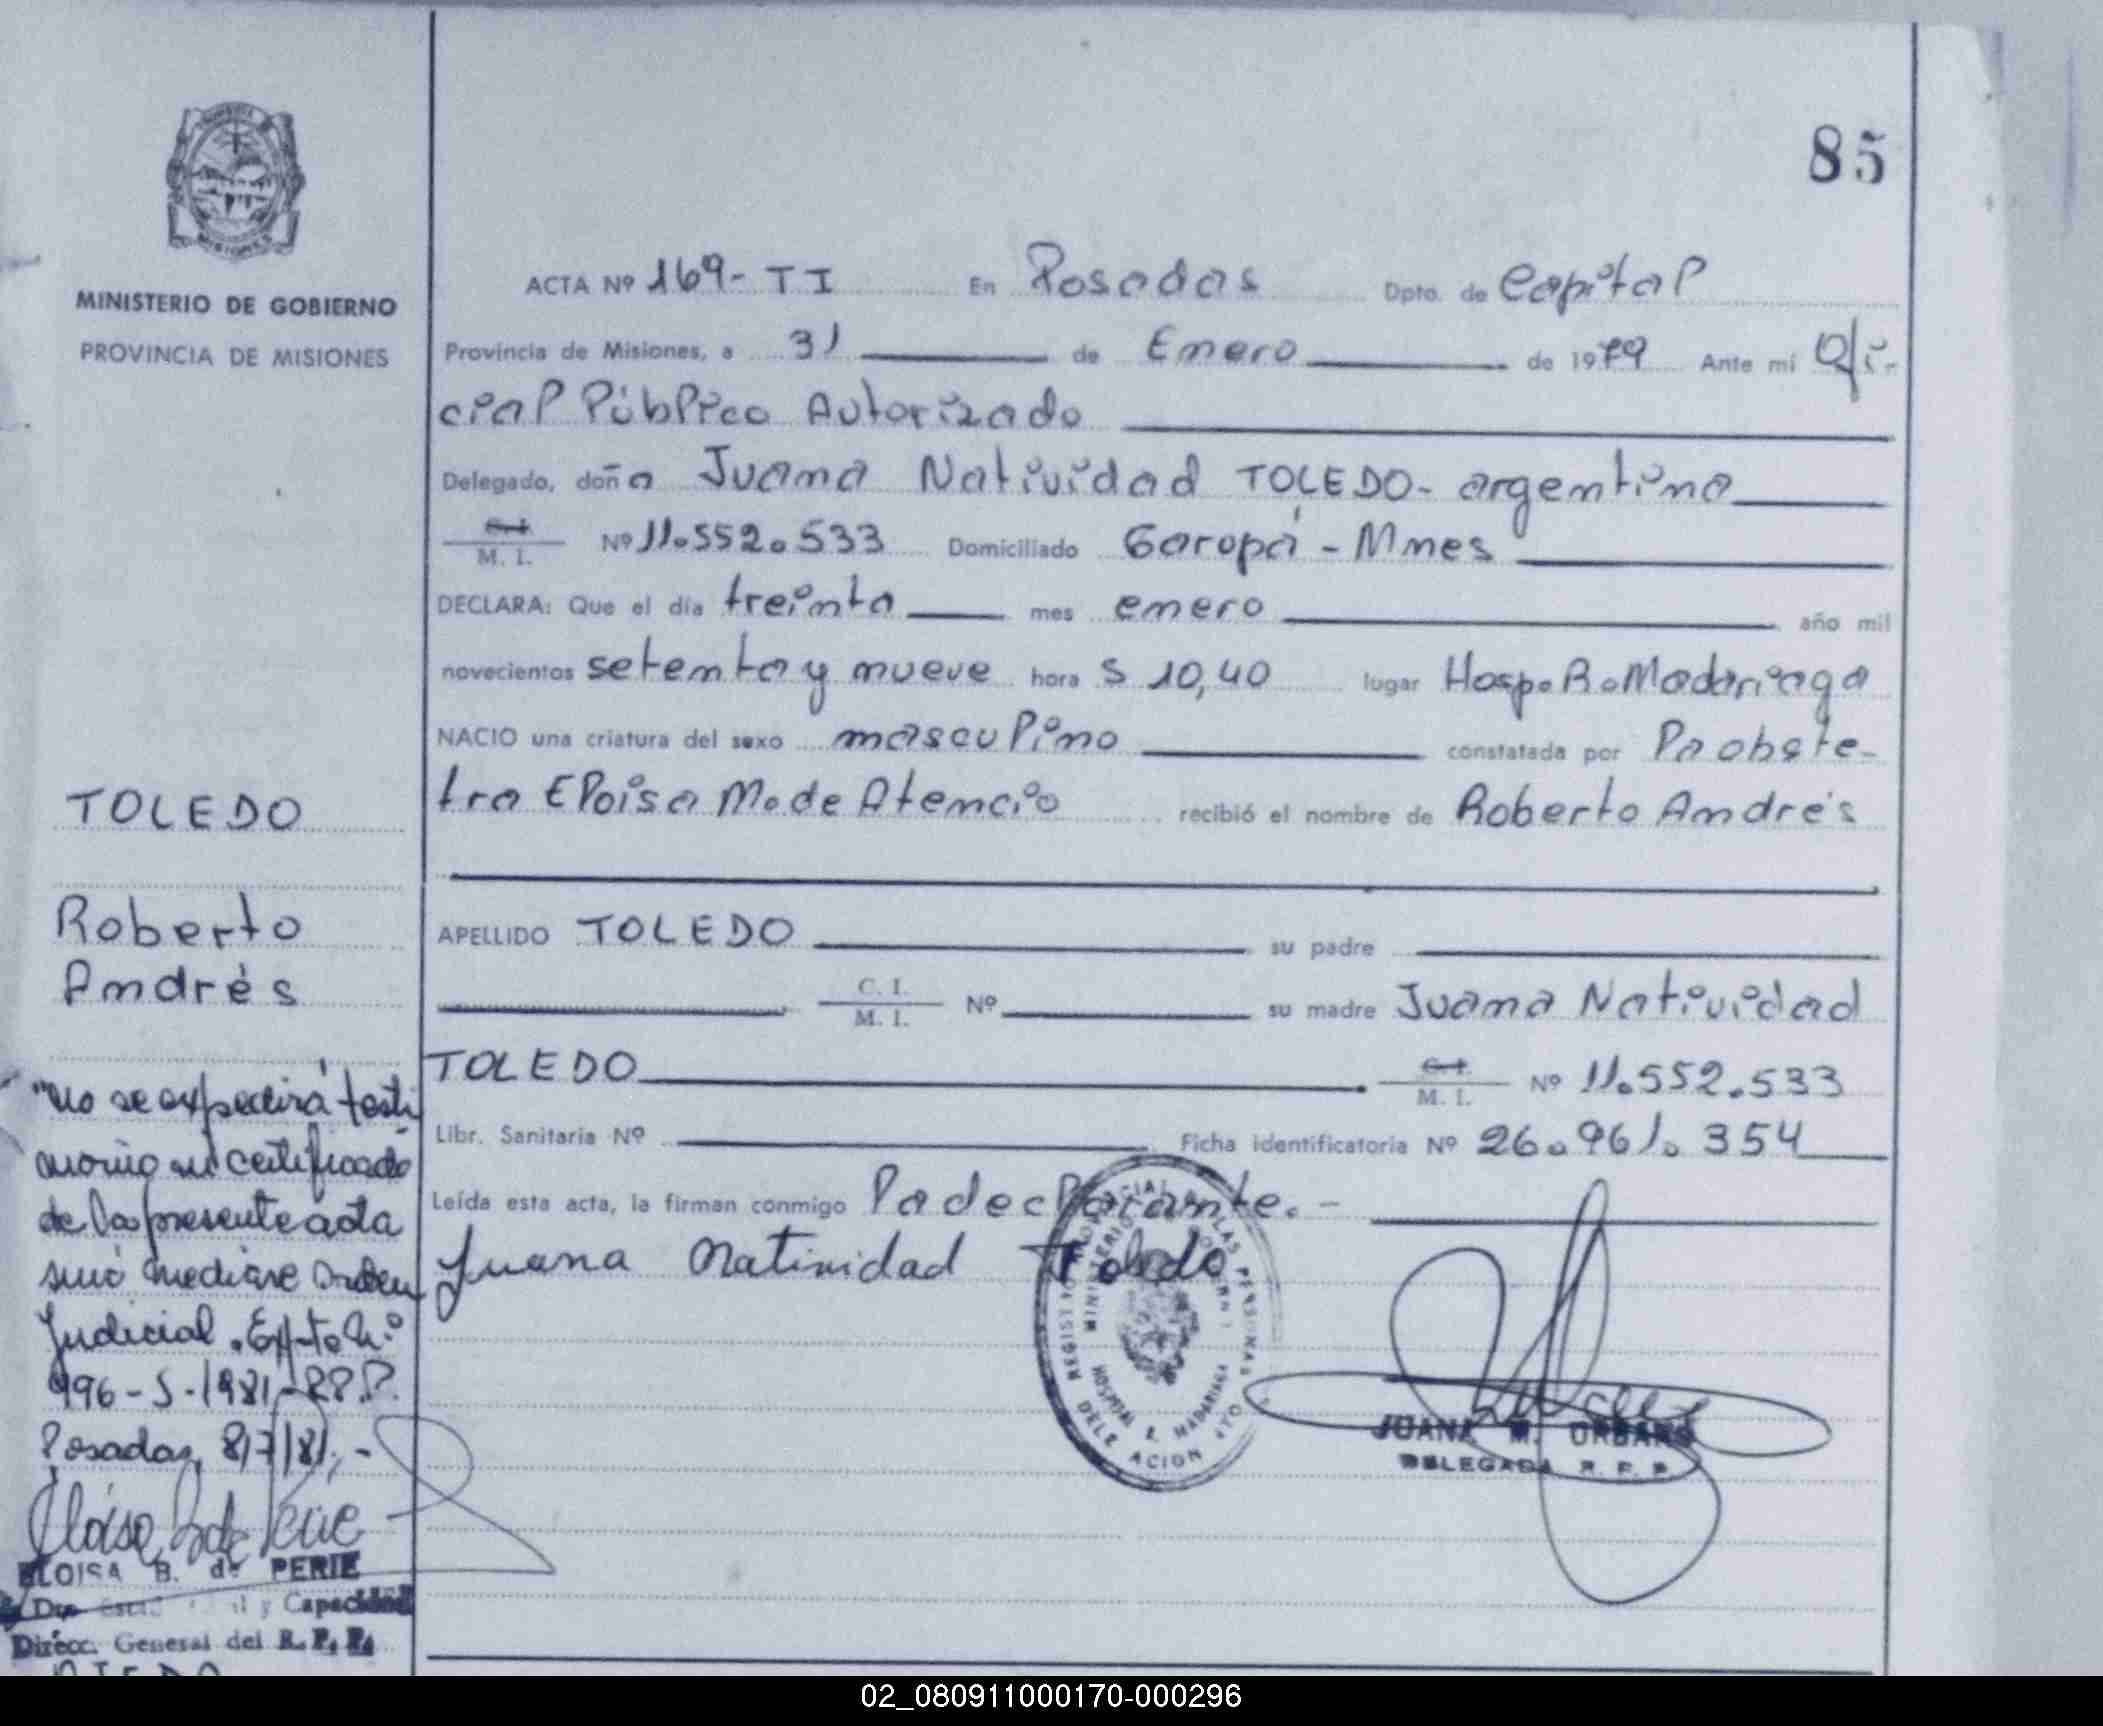 85
MINISTERIO DE GOBIERNO
PROVINCIA DE MISIONES
ACTA Nº 169-TI En Posadas Dpto. de Capital
Provincia de Misiones, a 31 de Enero de 1979 Ante mí Ofi-
cial Público Autorizado
Delegado, doña Juana Natividad TOLEDO- argentina
C. I. / M. I. Nº 11.552.533 Domiciliado Garupá - Mnes
DECLARA: Que el día treinta mes enero año mil
novecientos setenta y nueve hora S 10,40 lugar Hosp. R. Madariaga
NACIO una criatura del sexo masculino constatada por la obste-
tra Eloisa M. de Atencio recibió el nombre de Roberto Andrés
APELLIDO TOLEDO su padre
C. I. / M. I. Nº su madre Juana Natividad
TOLEDO C. I. / M. I. Nº 11.552.533
Libr. Sanitaria Nº Ficha identificatoria Nº 26.961.354
Leída esta acta, la firman conmigo la declarante.-
Juana Natividad Toledo
MINISTERIO DE GOBIERNO
HOSPITAL R. MADARIAGA
JUANA M. URBANO
DELEGADA R. P. P.
TOLEDO
Roberto
Andrés
"No se expedirá testi
monio ni certificado
de la presente acta
sino mediare Orden
Judicial. Expte N.º
996-S-1981-RPP.
Posadas, 8/7/81.-
ELOISA B. de PERIE
Capacidad
Direcc. General del R. P. P.
02_080911000170-000296